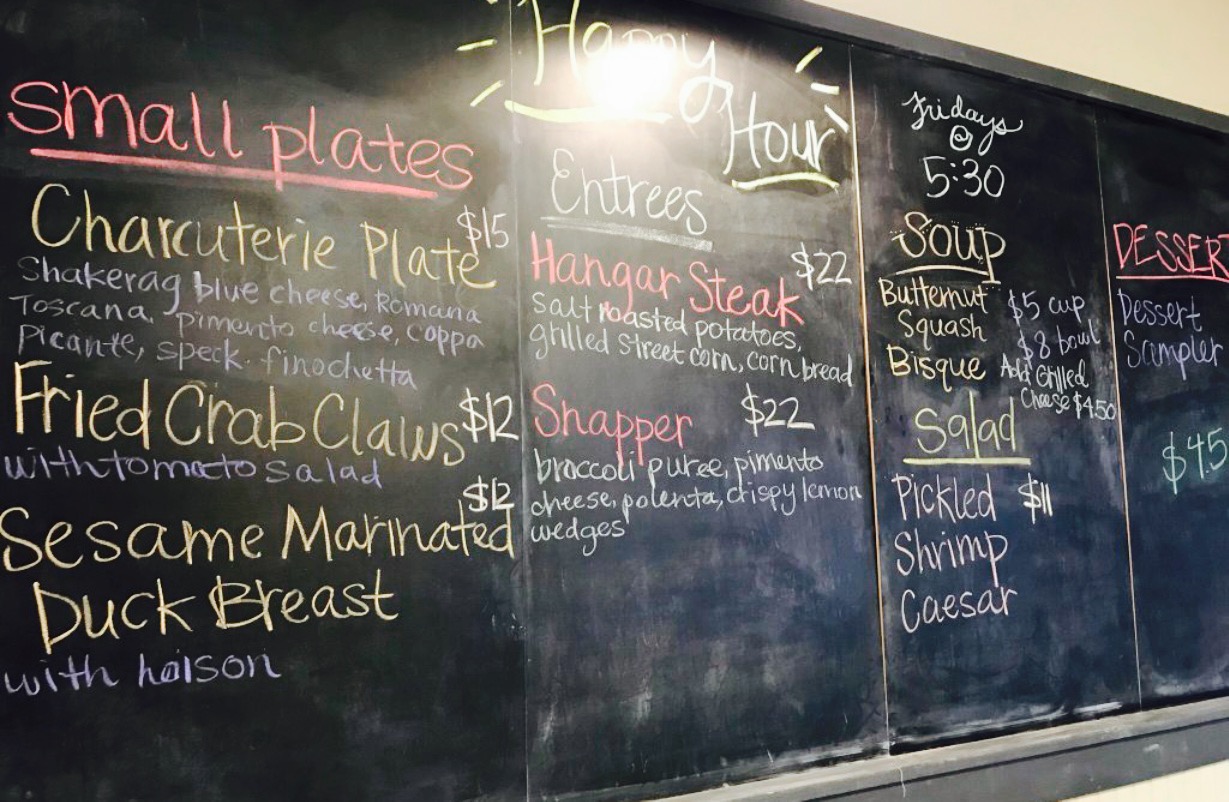 Small plates
Charcuterie Plate $15
Shakerag blue cheese, Romana
Toscana, pimento cheese, coppa
Picante, speck, finochetta
Fried Crab Claws $12
with tomato salad
$12
Sesame Marinated
Duck Breast
with hoison
Happy
Hour
Entrees
Hangar Steak $22
Salt roasted potatoes,
grilled street corn, corn bread
Snapper $22
broccoli puree, pimento
cheese, polenta, crispy lemon
wedges
Fridays
@
5:30
Soup
Butternut $5 cup
Squash $8 bowl
Bisque Add Grilled
Cheese $4.50
Salad
Pickled $11
Shrimp
Caesar
DESSERT
Dessert
Sampler
$4.5